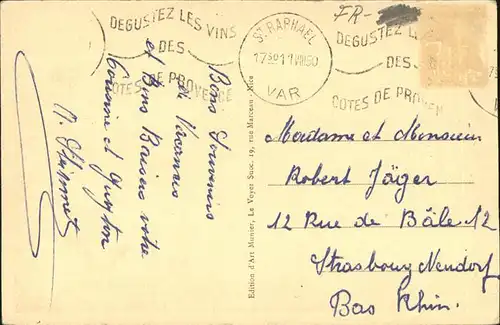 FR-
DEGUSTEZ LES VINS
DES
COTES DE PROVENCE
ST RAPHAEL
17 30 1 1 VIII 50
VAR
DEGUSTEZ L
DES
COTES DE PROVEN
Bons Souvenirs
de Vacances
et Bons Baisers votre
Cousine et
Edition d'Art Munier, La Voyez Succ. 19, rue Marceau - Nice
Madame et Monsieur
Robert Jäger
12 Rue de Bâle 12
Strasbourg Neudorf
Bas Rhin.